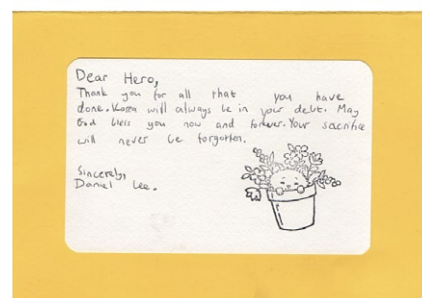 Dear Hero,
Thank you for all that you have
done. Korea will always be in your debt. May
God bless you now and forever. Your sacrifice
will never be forgotten.
Sincerely,
Daniel Lee.